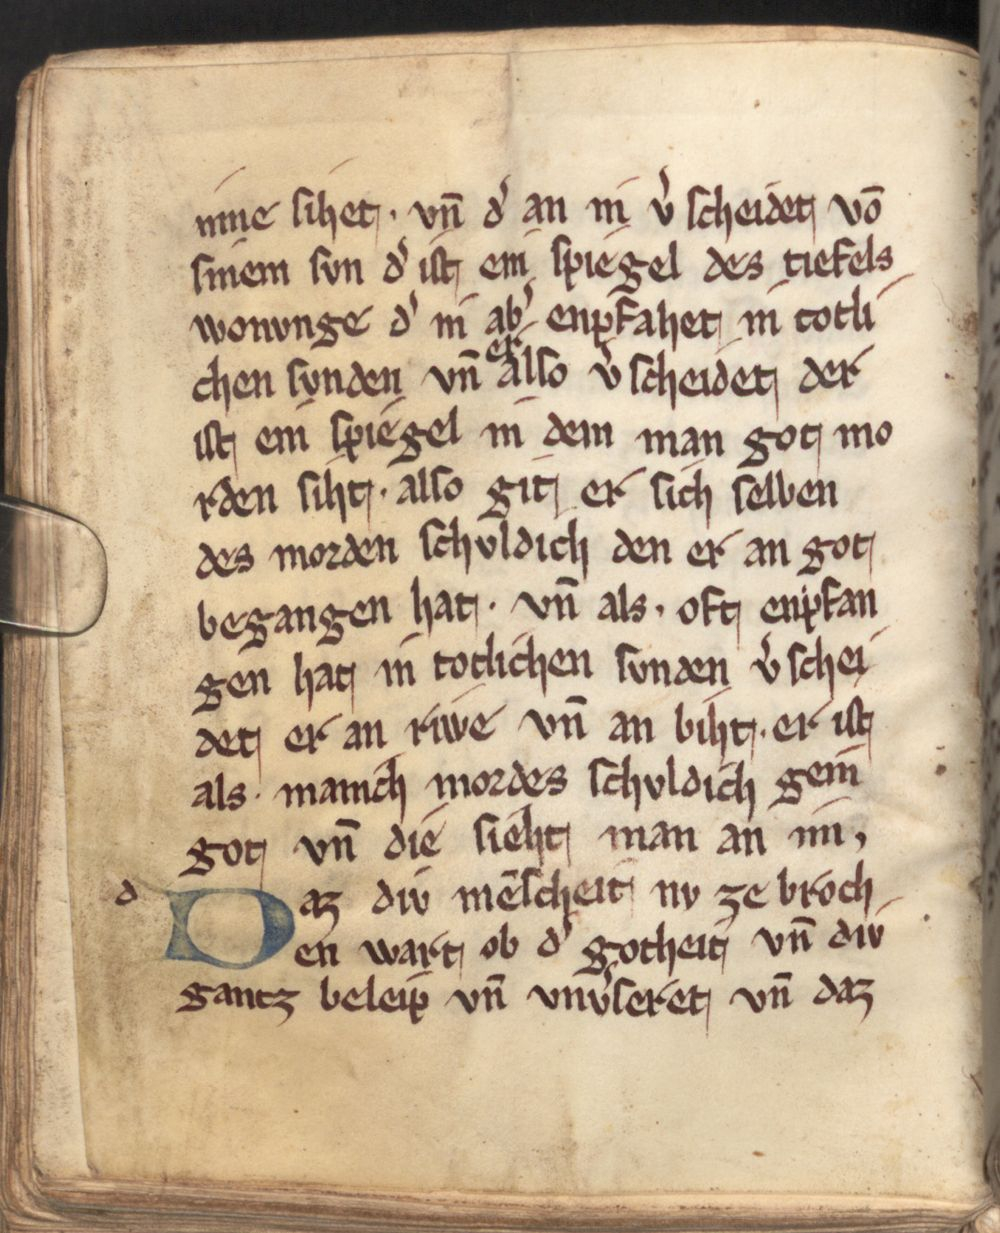 nme sihet · vn̄ d̾ an in v̾scheidet vō
sinem svn d̾ ist ein spiegel des tiefels
wonvnge d̾ in ab̾ enpfahet in totli
chen svnden vn̄ er also v̾scheidet der
ist ein spiegel in dem man got mo
rden siht · also git er sich selben
des morden schvldich den er an got
begangen hat · vn̄ als · oft enpfan
gen hat in totlichen svnden v̾schei
det er an riwe vn̄ an biht · er ist
als · manich mordes schvldich gein
got vn̄ die sieht man an im,
d
Daz div mēscheit nv ze broch
en wart ob d̾ gotheit vn̄ div
gantz beleip vn̄ vnv̾seret vn̄ daz